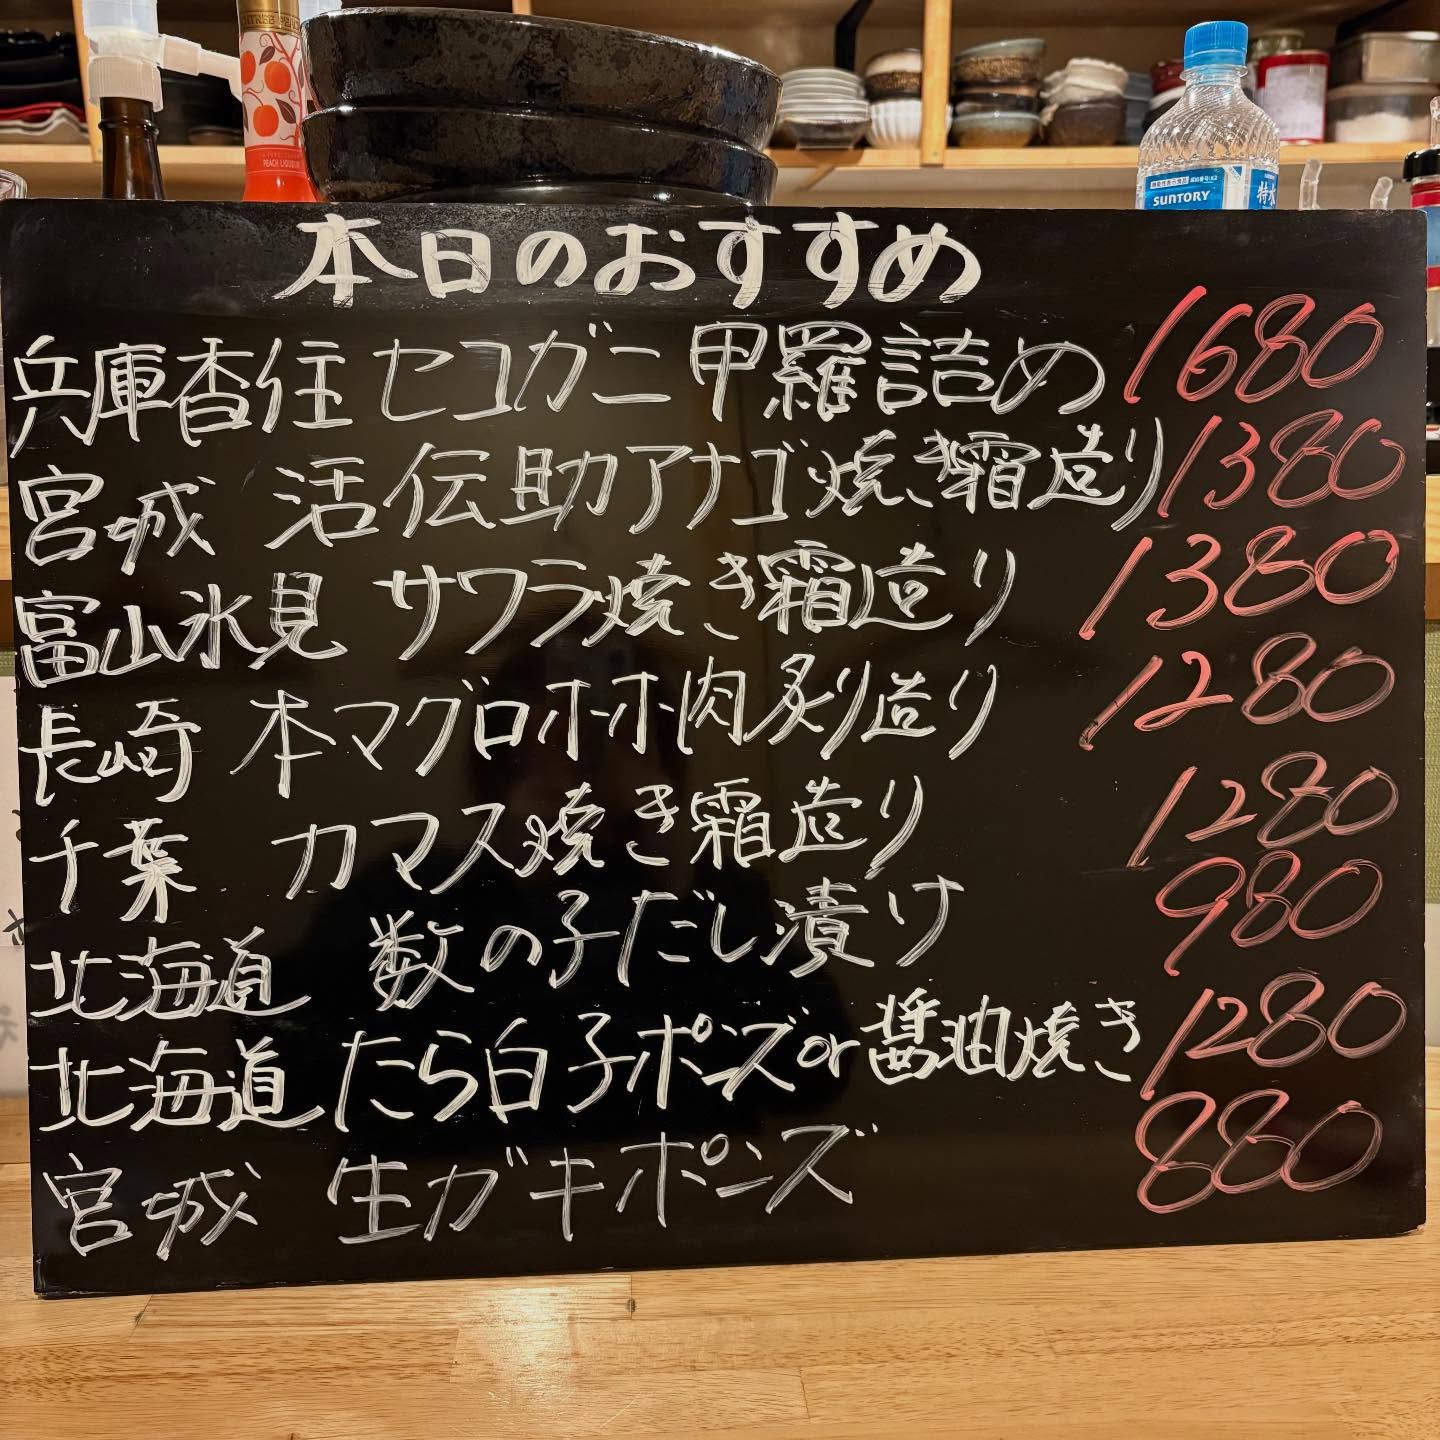 PEACH LIQUEUR
SUNTORY
特水
本日のおすすめ
兵庫香住 セコガニ 甲羅詰め 1680
宮城 活伝助アナゴ焼き霜造り 1380
富山氷見 サワラ焼き霜造り 1380
長崎 本マグロホホ肉炙り造り 1280
千葉 カマス焼き霜造り 1280
北海道 数の子だし漬け 980
北海道 たら白子ポンズor醤油焼き 1280
宮城 生ガキポンズ 880